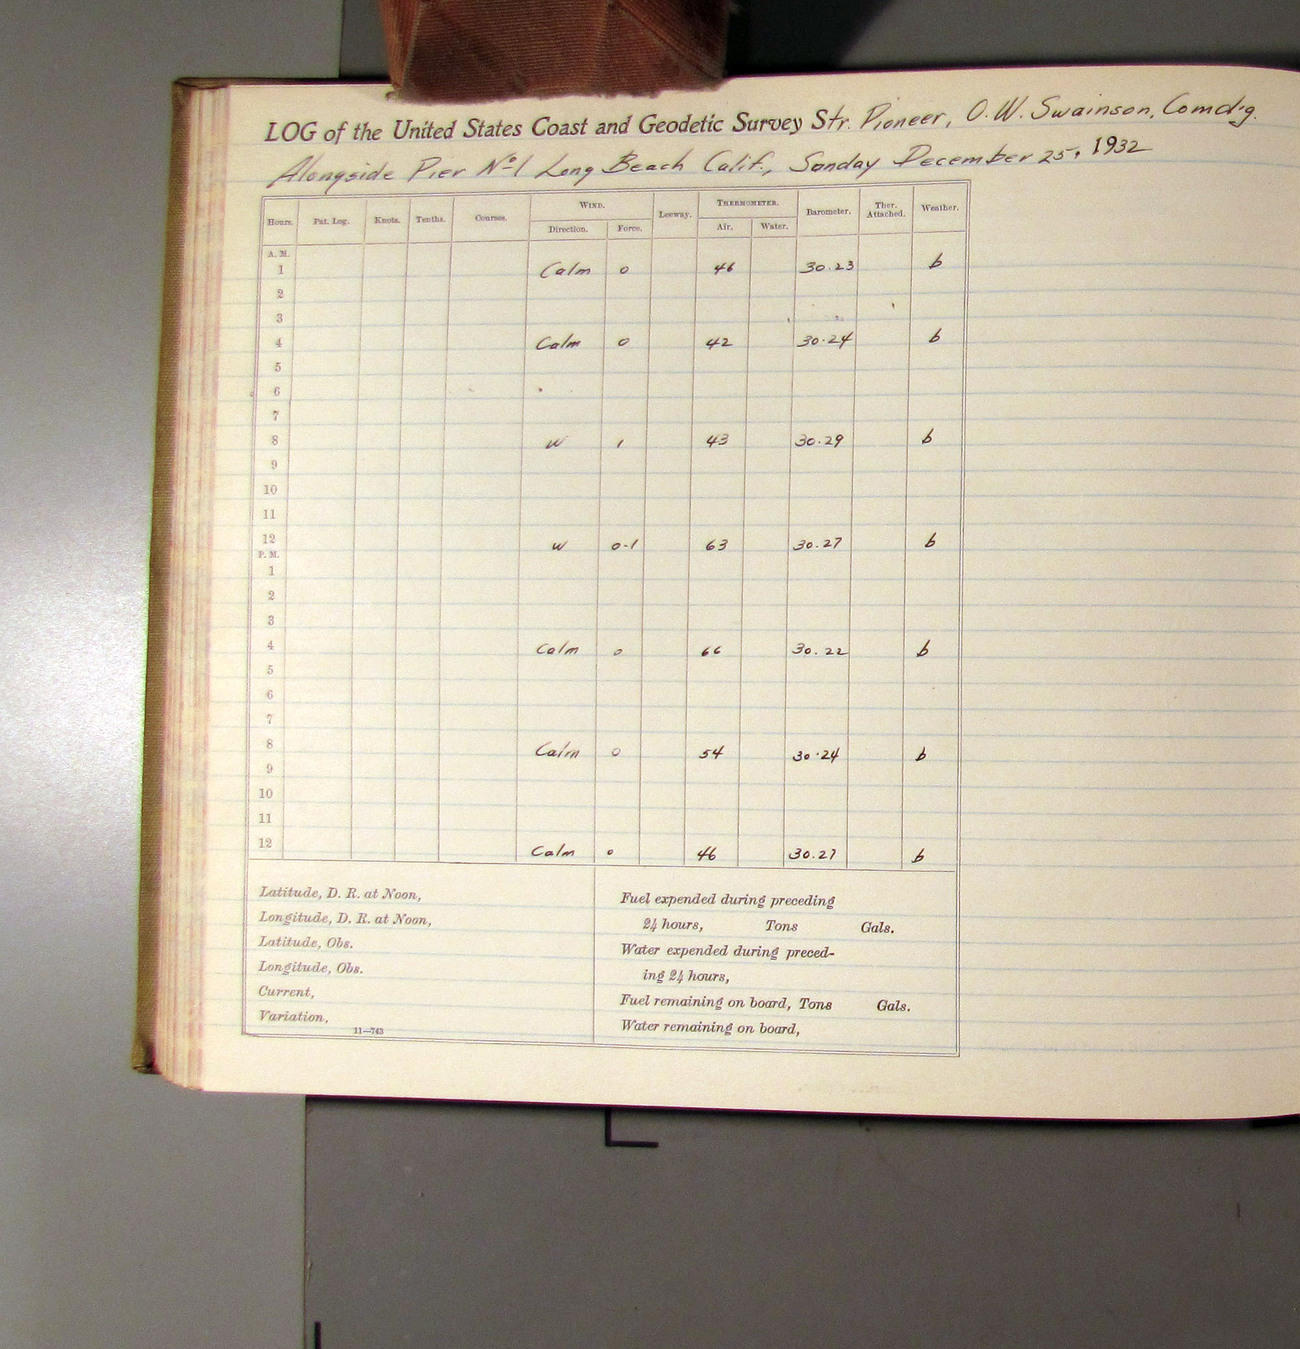 LOG of the United States Coast and Geodetic Survey Str. Pioneer, O. W. Swainson, Comd'g.
Alongside Pier No 1 Long Beach Calif., Sunday December 25, 1932
Hours. Pat. Log. Knots. Tenths. Courses. WIND. Leeway. THERMOMETER. Barometer. Ther. Attached. Weather.
Direction. Force. Air. Water.
A. M.
1 Calm 0 46 30.23 b
2
3
4 Calm 0 42 30.24 b
5
6
7
8 W 1 43 30.29 b
9
10
11
12 W 0-1 63 30.27 b
P. M.
1
2
3
4 Calm 0 66 30.22 b
5
6
7
8 Calm 0 54 30.24 b
9
10
11
12 Calm 0 46 30.27 b
Latitude, D. R. at Noon,
Longitude, D. R. at Noon,
Latitude, Obs.
Longitude, Obs.
Current,
Variation,
11—743
Fuel expended during preceding
24 hours, Tons Gals.
Water expended during preced-
ing 24 hours,
Fuel remaining on board, Tons Gals.
Water remaining on board,